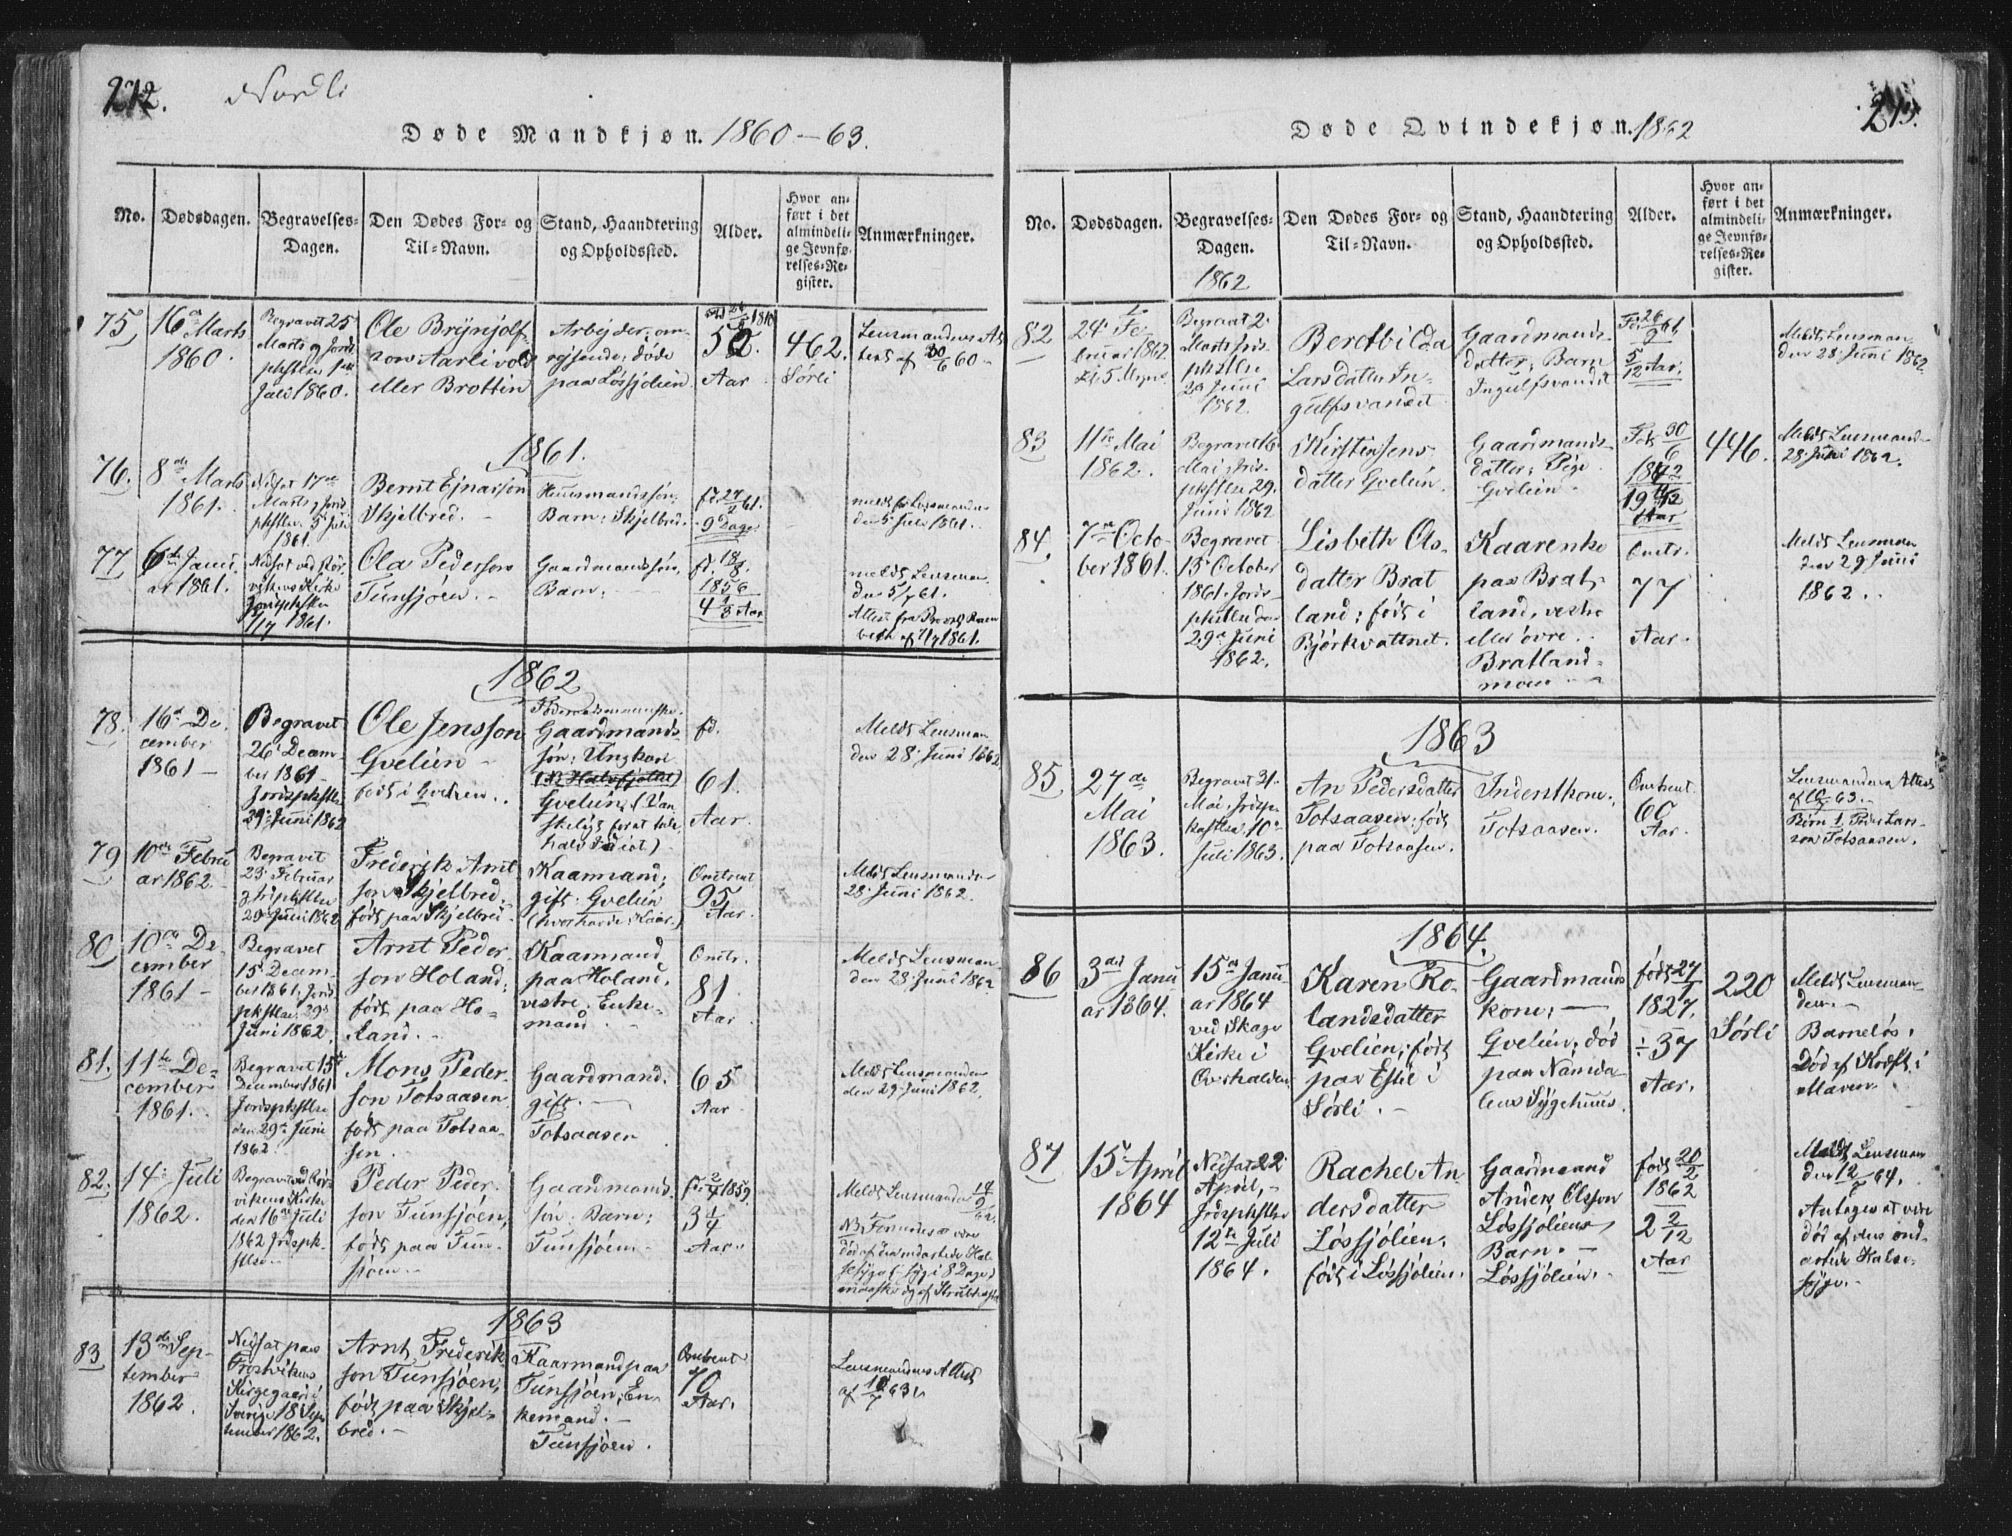 272.
Nordli
Døde Mandkjøn. 1860–63.
No.
Dødsdagen.
Begravelses-
Dagen.
Den Dødes For- og
Til-Navn.
Stand, Haandtering
og Opholdssted.
Alder.
Hvor an-
ført i det
almindeli-
ge Jevnfø-
relses-Re-
gister.
Anmærkninger.
75,
16de Marts
1860.
Begravet 25
Marts og Jords
pkstlse 1ste
Juli 1860.
Ole Brynjolf-
son Aarlivold
eller Brottin
Arbejder, om-
rejsende; døde
paa Løssjølien
52.
Aar
462.
Sørli
Lensmandens At-
test af 30/6 60
1861.
76.
8de Marts
1861.
Nedsat 17de
Marts, Jords
pkstlse 5te Juli
1861.
Bernt Ejnarson
Skjelbred.
Huusmandssøn,
Barn; Skjelbred.
fd. 27/2 61.
9 Dage
den 5te Juli 1861.
77
6te Janu-
ar 1861.
Nedsat ved Rør
vikens Kirke
Jordspkstlse
7/7 1861.
Ola Pederson
Tunsjøen.
Gaardmandssøn,
Barn;
fd. 18/8.
1856
4 2/3 Aar
meldt Lensman.
den 5/7 61.
Attest fra
af 7/7 1861.
1862
78.
16de De-
cember
1861
Begravet
26 Decem-
ber 1861
Jordspkstlse
29. Juni 1862
Ole Jensson
Gvelien
født i Gvelien.
Gaardmands-
søn; Ungkarl
Gvelien, (Van-
skeligt for at tale
halv Idiot)
fd.
61.
Aar.
Meldt Lensman
den 28. Juni 1862
79
10de Febru-
ar 1862.
Begravet
23 Februar
Jordspkstlse
29. Juni 1862
Frederik Arnt
son Skjelbred.
født paa Skjelbred.
Kaarmand;
gift. Gvelien
(hvor havde Kaar.)
Omtrent
95
Aar.
Meldt Lensmanden
28. Juni 1862.
80
10de De-
cember
1861
Begravet
15 Decem-
ber 1861; Jords
pkstlse 29de
Juni 1862.
Arnt Peder-
son Holand;
født paa Ho-
land.
Kaarmand
paa Holand,
vestre. Enke-
mand
Omtr.
81
Aar
Meldt Lensman-
den 28 Juni 1862
81.
11te De-
cember
1861.
Begravet 15de
December 1861
Jordspkstlse
den 29de Juni
1862.
Mons Peder-
son Totsaasen
født paa Totsaa-
sen.
Gaardmand.
gift.
Totsaasen
65
Aar
Meldt Lensmanden
den 29 Juni 1862.
82.
14. Juli
1862.
Begravet ved Rør-
vikens Kirke
den 16de Juli
1862 Jordspk-
stlse
Peder Peder-
son Tunsjøen,
født paa Tun-
sjøen.
Gaardmands-
søn. Barn;
Tunsjøen.
1859.
3 1/4
Aar.
Meldt Lensmanden
NB. Formenes at være
død af den ondartede Hal-
sesyge; syg i 8 Dage;
maaske og af Strubehoste
1863
83
13de Sep-
tember
1862.
Nedsat paa
Frostvikens
Kirkegaard i
Sverige 18 Sep
tember 1862.
Arnt Frederik-
son Tunsjøen,
født paa Skjel-
bred.
Kaarmand paa
Tunsjøen; En-
kemand.
Tunsjøen.
Omtrent
70
Aar.
Lensmandens Attest
af 10/7 63.
273.
Døde Qvindekjøn. 1862
No.
Dødsdagen.
Begravelses-
Dagen.
1862
Den Dødes For- og
Til-Navn.
Stand, Haandtering
og Opholdssted.
Alder.
Hvor an-
ført i det
almindeli-
ge Jevnfø-
relses-Re-
gister.
Anmærkninger.
82
24. Fe-
bruar 1862.
Begravet 2.
Marts Jords-
pkstlse
29 Juni
1862.
Berethilda
Larsdatter In-
gulfsvandet
Gaardmands-
datter; Barn
Ingulfsvandet
5/12 Aar.
Meldt Lensman
den 28. Juni 1862.
83
11te Mai
1862.
Begravet 16.
Mai, Jords-
pkstlse 29.
Juni 1862
Kirsten Jens-
datter Gvelien.
Gaardmands-
datter; Pige
Gvelien.
Født 30/6
1842
19
Aar
446.
Meldt Lensmand-
28. Juni 1862.
84.
7de Octo-
ber 1861.
Begravet
15 October
1861. Jords-
pkstlse den
29de Juni
1862.
Lisbeth Ols-
datter Brat
land; født i
Bjørkvattnet.
Kaarenke
paa Brat-
land, vestre
eller øvre.
Bratland-
moen
Omtr.
77
Aar.
Meldt Lensman
den 29 Juni
1862.
1863
85
27de
Mai
1863.
Begravet 31.
Mai. Jordspa-
kastlse 10de
Juli 1863.
An Pedersdatter
Totsaasen; født
paa Totsaasen.
Inderstkone;
Totsaasen.
Omtrent
60
Aar.
Lensmandens Attest
Børn 1. Peder Lars-
son Totsaasen.
1864.
86
3die Janu-
ar 1864.
15de Janu-
ar 1864
ved Skage
Kirke i
Overhalden
Karen Ro-
landsdatter
Gvelien; født
paa Estil i
Sørli.
Gaardmands
kone;
Gvelien; død
paa Namda-
lens Sygehuus.
født 27
1827.
÷ 37
Aar.
220
Sørli
Meldt Lensman-
den.
Barneløs.
Død af Kræft i
Maven.
87
15 April
1864
Nedsat 22
April,
Jordspkstlse
12te Juli
1864.
Rachel An-
dersdatter
Løssjølien.
født i Løssjølien.
Gaardmand
Anders Olsson
Løssjøliens
Barn.
Løssjølien.
født 20/2
1862
2 2/12
Aar
Meldt Lensman
den 12/6 64.
Antages at være
død af den ond-
artede Halse-
syge.